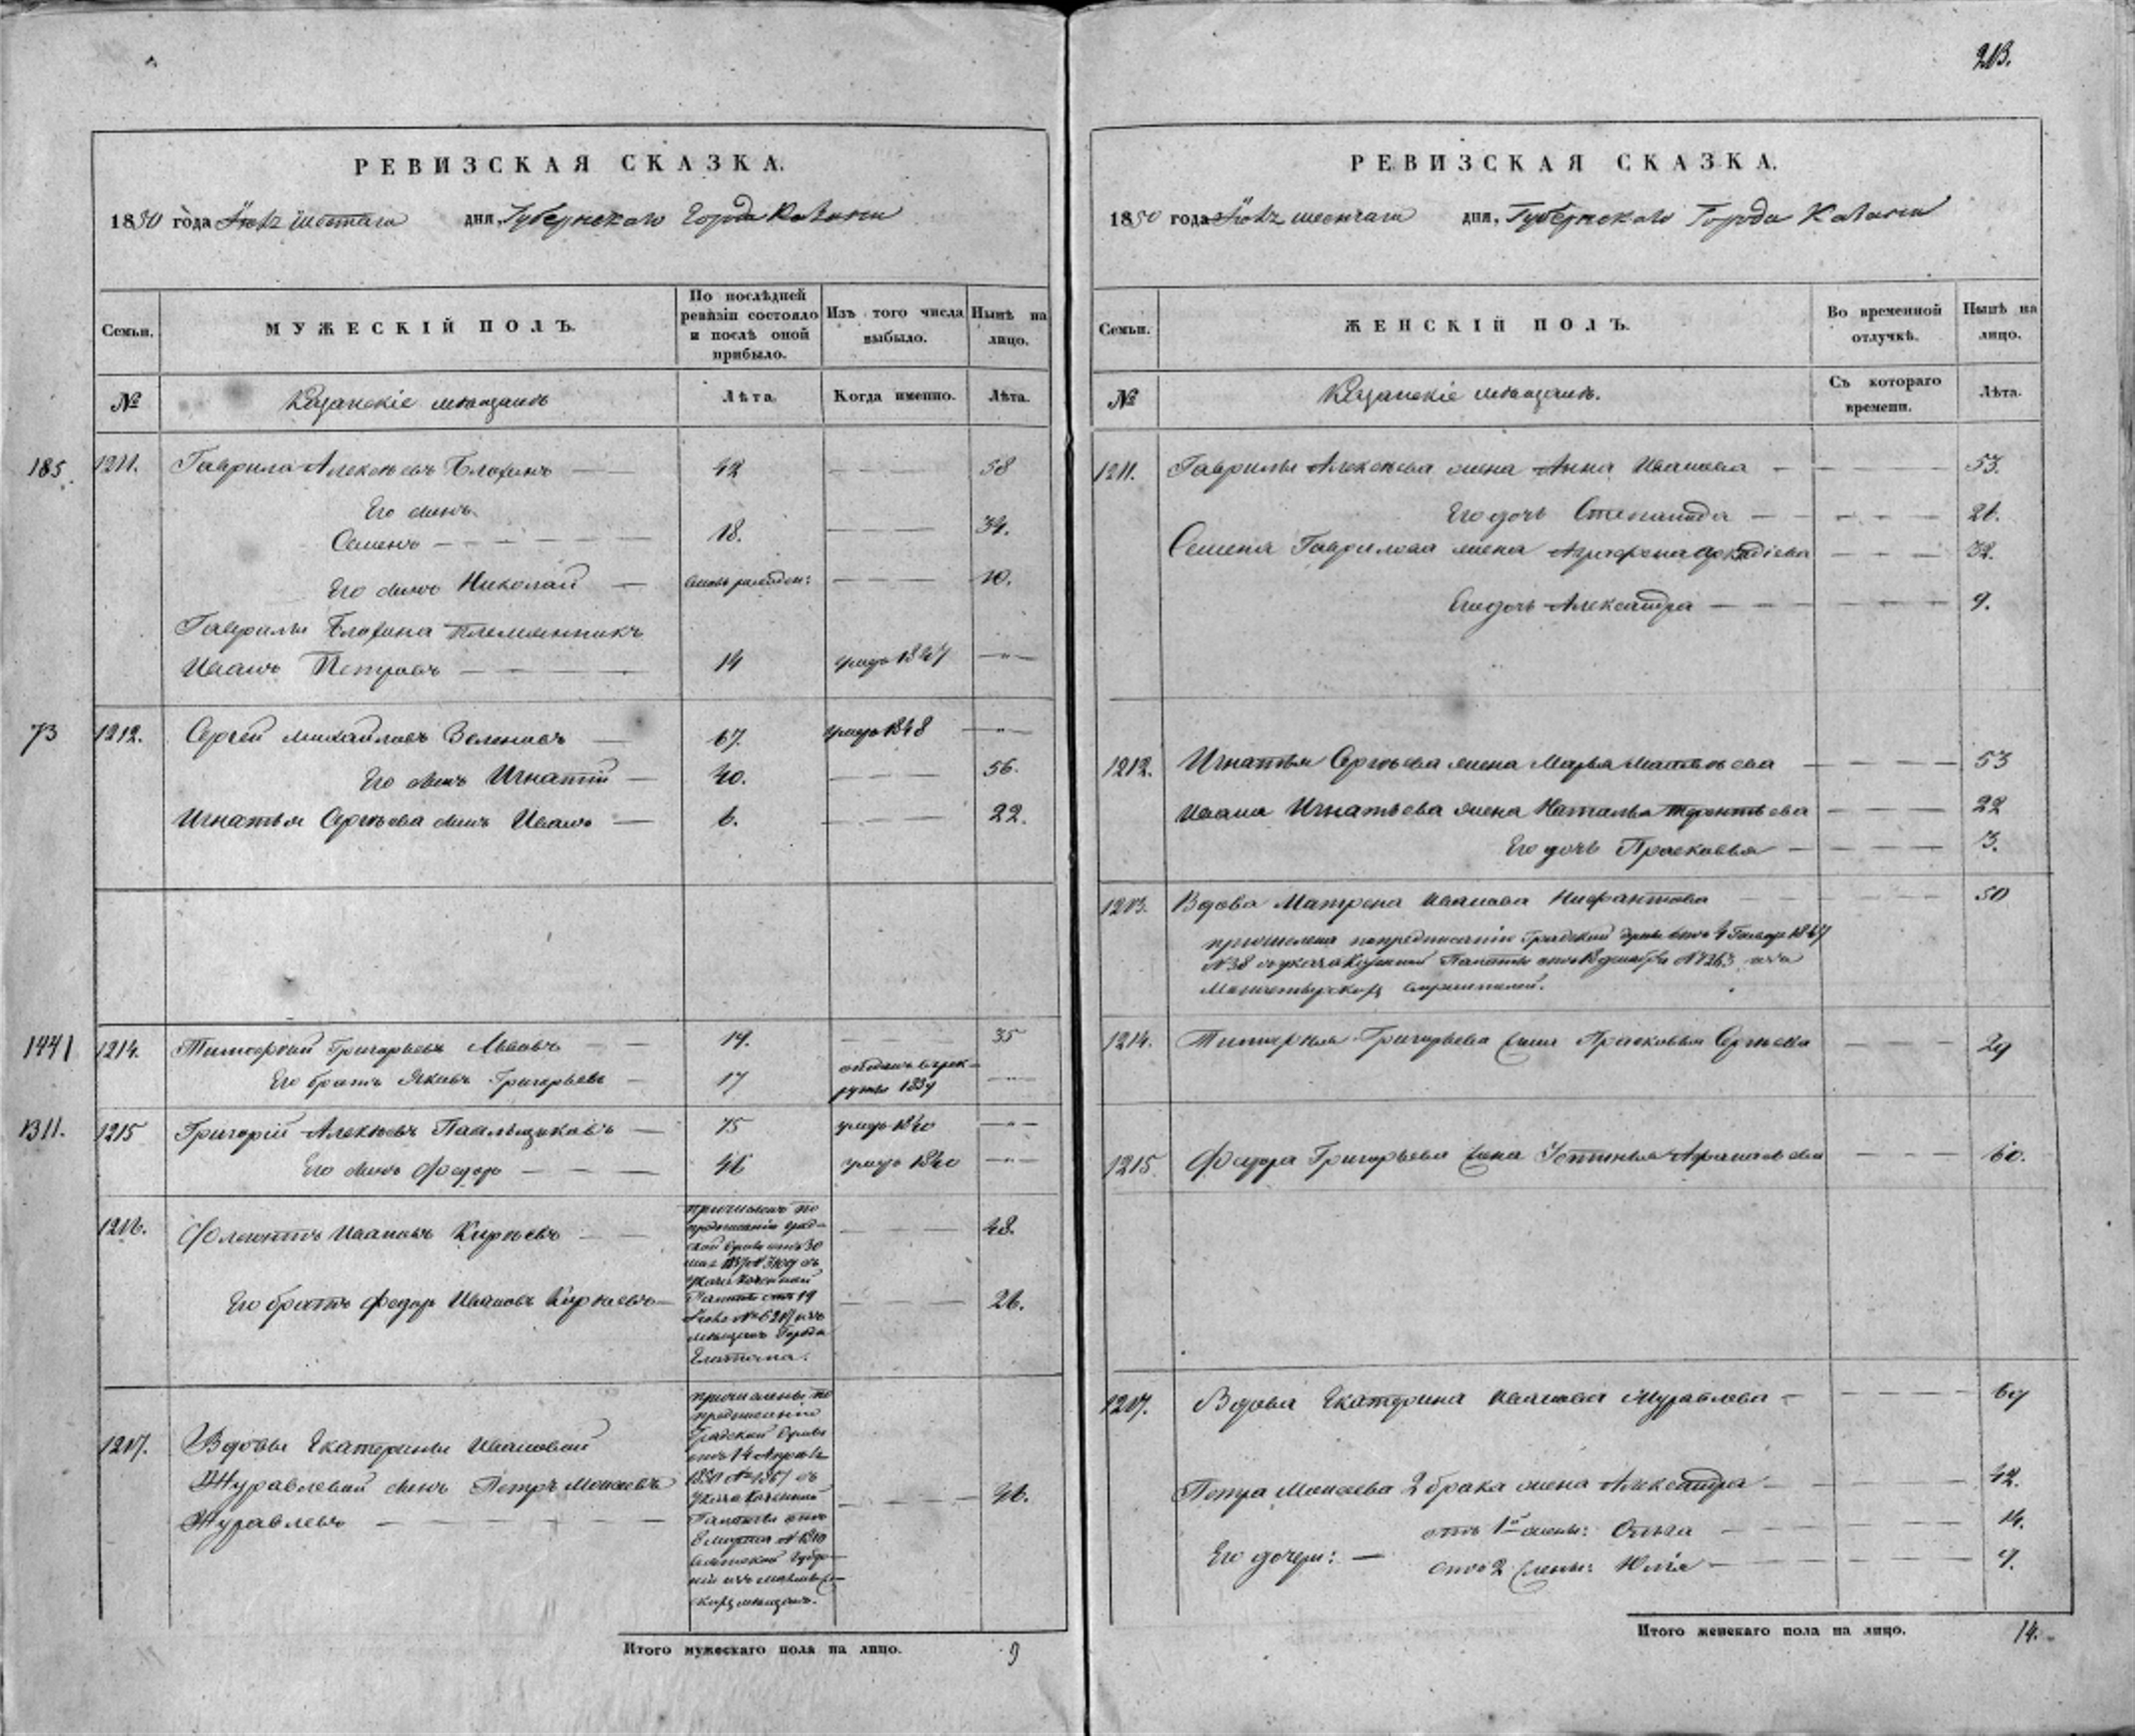 213.
РЕВИЗСКАЯ СКАЗКА.
1850 года шестаго дня, Губернскаго Города Казани
Семьи. МУЖЕСКІЙ ПОЛЪ. По послѣдней ревизіи состояло и послѣ оной прибыло. Изъ того числа выбыло. Нынѣ на лицо.
№ Казанскіе мѣщане Лѣта. Когда именно. Лѣта.
185. 1211. Гаврила Алексѣевъ 42 — — — 58
Его сынъ
Семенъ — 18. — — — 34.
Его сынъ Николай — вновь рожден: — — — 10.
Гаврилы племянникъ
Иванъ Петровъ — 14 умеръ 1847 — „ —
73 1212. Сергей Михайловъ Зеленовъ — 67. умеръ 1848 — „ —
Его сынъ Игнатій — 40. — — — 56.
Игнатья Сергѣева сынъ Иванъ — 6. — — — 22.
1441 1214. Тимофей Григорьевъ Львовъ — 19. — 35
Его братъ Яковъ Григорьевъ — 17 отданъ въ рекруты 1839 — „ —
1311. 1215 Григорій Алексѣевъ — 75 умеръ 1840 — „ —
Его сынъ Федоръ — 46 умеръ 1840 — „ —
1216. Иванъ Кирѣевъ — — — — 48.
Его братъ Федоръ Ивановъ Кирѣевъ — — — — 26.
причисленъ по
предписанію Град-
ской Думы отъ 30
мая 1837 № съ
указа Казенной
Палаты отъ 19
№ 6207 изъ
мѣщанъ Города
Елатома.
1217. Вдовы Екатерины Ивановой
Журавлевой сынъ Петръ Моисеевъ
Журавлевъ — — — 46.
причислены по
предписанію
Градской Думы
отъ 14 Апрѣля
1850 № 1867 съ
указа Казенной
Палаты отъ
8 марта № 1810
Вятской Губер-
ніи изъ
мѣщанъ.
Итого мужескаго пола на лицо. 9
РЕВИЗСКАЯ СКАЗКА.
1850 года шестаго дня, Губернскаго Города Казани
Семьи. ЖЕНСКІЙ ПОЛЪ. Во временной отлучкѣ. Нынѣ на лицо.
№ Казанскіе мѣщане. Съ котораго времени. Лѣта.
1211. Гаврилы Алексѣева жена Анна Иванова — — — — 53.
Его дочь Степанида — — — — 21.
Семена Гаврилова жена Аграфена Аркадіева — — — 32.
Его дочь Александра — — — — 9.
1212. Игнатья Сергѣева жена Марья Матвѣева — — — 53
Ивана Игнатьева жена Наталья Терентьева — — — 22
Его дочь Прасковья — — — — 3.
1213. Вдова Матрена Иванова Нифантова — — — 50
причислена по предписанію Градской Думы отъ 4 Генваря 1847
№ 38 съ указа Казенной Палаты отъ 18 декабря № 7263 изъ
Монастырскихъ служителей.
1214. Тимофея Григорьева жена Прасковья Сергѣева — — — 29
1215. Федора Григорьева жена Устинья Афанасьева — — — 60.
1217. Вдова Екатерина Иванова Журавлева — — — — 69
Петра Моисеева 2 брака жена Александра — — — — 42.
отъ 1й жены: Ольга — — — — 14.
Его дочери: —
отъ 2 жены: Юлія — — — — 9.
Итого женскаго пола на лицо. 14.